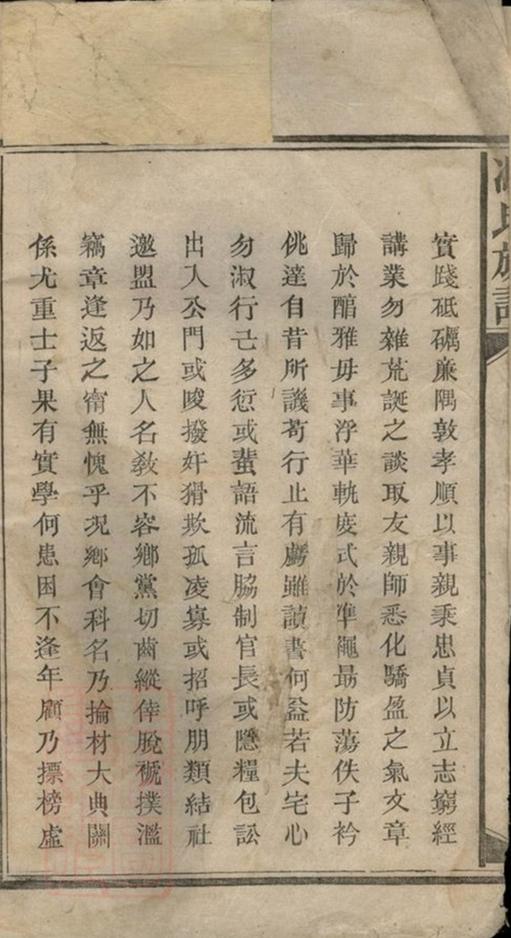 氏族譜
實踐砥礪廉隅敦孝順以事親秉忠貞以立志窮經
講業勿雜荒誕之談取友親師悉化驕盈之氣文章
歸於醇雅毋事浮華軌度式於準繩最防蕩佚子衿
佻達自昔所譏苟行止有虧雖讀書何益若夫宅心
勿淑行己多愆或蜚語流言脇制官長或隱糧包訟
出入公門或唆撥奸猾欺孤凌寡或招呼朋類結社
邀盟乃如之人名敎不容鄉黨切齒縱倖脫褫撲濫
竊章逢返之甯無愧乎况鄉會科名乃掄材大典關
係尤重士子果有實學何患困不逢年顧乃摽榜虛